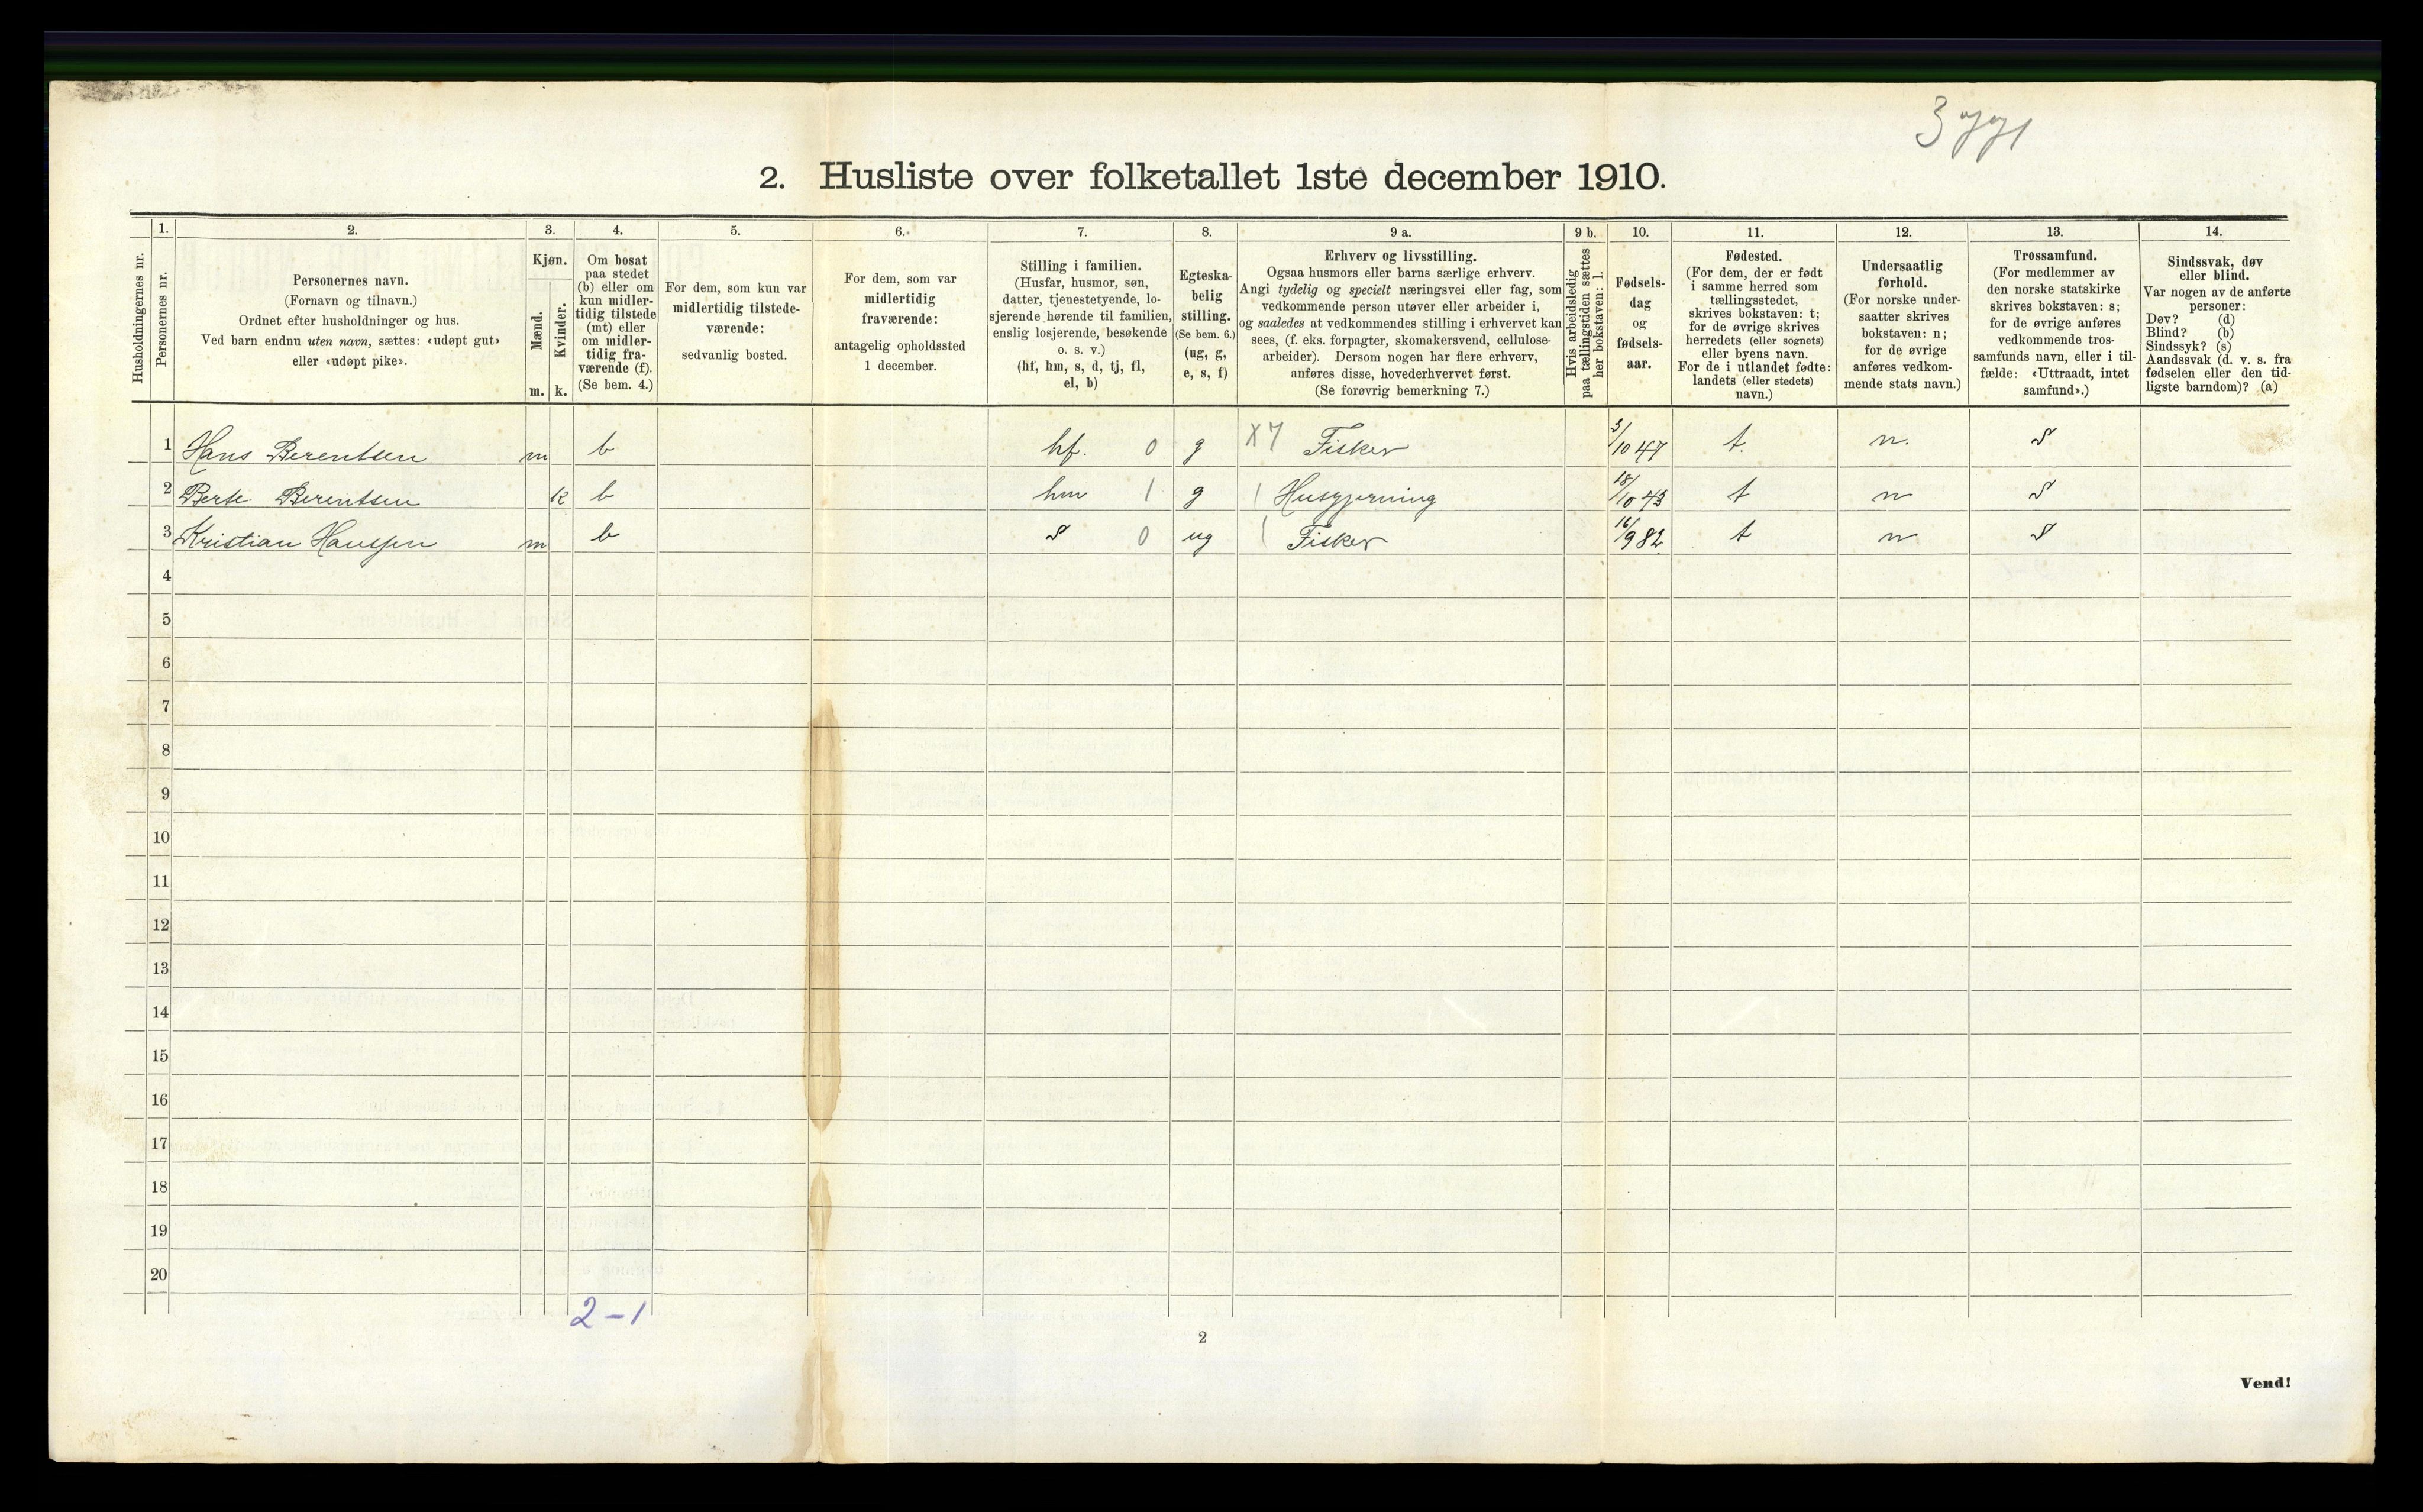 3 gg1
2. Husliste over folketallet 1ste december 1910.
Husholdningernes nr.
1.
Personernes nr.
2.
Personernes navn.
(Fornavn og tilnavn.)
Ordnet efter husholdninger og hus.
Ved barn endnu uten navn, sættes: «udøpt gut»
eller «udøpt pike».
3.
Kjøn.
Mænd.
Kvinder.
m. k.
4.
Om bosat
paa stedet
(b) eller om
kun midler-
tidig tilstede
(mt) eller
om midler-
tidig fra-
værende (f).
(Se bem. 4.)
5.
For dem, som kun var
midlertidig tilstede-
værende:
sedvanlig bosted.
6.
For dem, som var
midlertidig
fraværende:
antagelig opholdssted
1 december.
7.
Stilling i familien.
(Husfar, husmor, søn,
datter, tjenestetyende, lo-
sjerende hørende til familien,
enslig losjerende, besøkende
o. s. v.)
(hf, hm, s, d, tj, fl,
el, b)
8.
Egteska-
belig
stilling.
(Se bem. 6.)
(ug, g,
e, s, f)
9 a.
Erhverv og livsstilling.
Ogsaa husmors eller barns særlige erhverv.
Angi tydelig og specielt næringsvei eller fag, som
vedkommende person utøver eller arbeider i,
og saaledes at vedkommendes stilling i erhvervet kan
sees, (f. eks. forpagter, skomakersvend, cellulose-
arbeider). Dersom nogen har flere erhverv,
anføres disse, hovederhvervet først.
(Se forøvrig bemerkning 7.)
9 b.
Hvis arbeidsledig
paa tællingstiden sættes
her bokstaven: l.
10.
Fødsels-
dag
og
fødsels-
aar.
11.
Fødested.
(For dem, der er født
i samme herred som
tællingsstedet,
skrives bokstaven: t;
for de øvrige skrives
herredets (eller sognets)
eller byens navn.
For de i utlandet fødte:
landets (eller stedets)
navn.)
12.
Undersaatlig
forhold.
(For norske under-
saatter skrives
bokstaven: n;
for de øvrige
anføres vedkom-
mende stats navn.)
13.
Trossamfund.
(For medlemmer av
den norske statskirke
skrives bokstaven: s;
for de øvrige anføres
vedkommende tros-
samfunds navn, eller i til-
fælde: «Uttraadt, intet
samfund».)
14.
Sindssvak, døv
eller blind.
Var nogen av de anførte
personer:
Døv? (d)
Blind? (b)
Sindssyk? (s)
Aandssvak (d. v. s. fra
fødselen eller den tid-
ligste barndom)? (a)
1 Hans Berentsen m b hf. 0 g X7 Fisker 3/10 47 t. n. s
2 Berte Berentsen k b hm 1 g 1 Husgjerning 18/10 43 t n s
3 Kristian Hansen m b s 0 ug 1 Fisker 16/9 82 t n s
4
5
6
7
8
9
10
11
12
13
14
15
16
17
18
19
20
2-1
2
Vend!